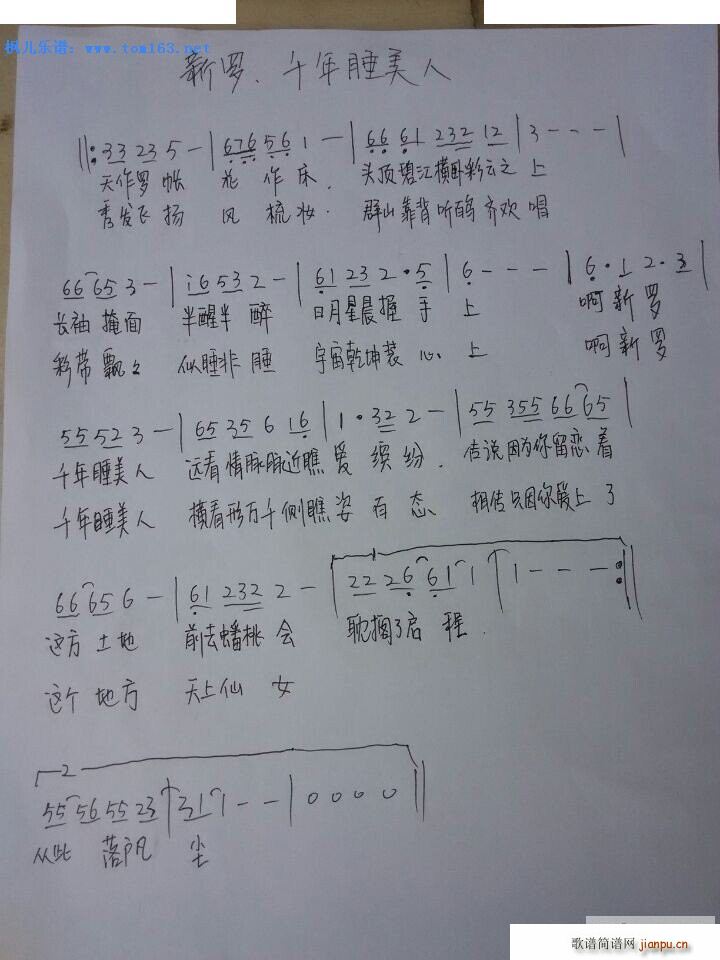 枫儿乐谱: www.tom163.net
新罗、千年睡美人
||: 33 23 5 - | 676 56 1 - | 66 61 232 12 | 3 - - - |
天作罗帐 花 作 床. 头顶碧江横卧彩云之 上
秀发飞扬 风 梳 妆. 群山靠背听鸟齐欢 唱
66 65 3 - | i6 53 2 - | 61 23 2 · 5 | 6 - - - | 6 · 1 2 · 3 |
长袖 掩面 半醒半 醉 日月星晨握 手 上 啊 新 罗
彩带 飘々 似睡非 睡 宇宙乾坤装 心 上 啊 新 罗
55 52 3 - | 65 35 6 16 | 1 · 32 2 - | 55 355 66 65 |
千年睡美人 远看情脉脉近瞧 爱 缤 纷. 传说因为你留恋着
千年睡美人 横看形万千侧瞧 姿 百 态 相传只因你爱上 了
66 65 6 - | 61 232 2 - | 22 26 61 1 | 1 - - - :||
这方 土地 前去蟠桃 会 耽搁了启 程.
这个 地方 天上仙 女
2
55 56 55 23 | 31 1 - - | 0 0 0 0 ||
从此 落户凡 尘
歌谱简谱网 jianpu.cn